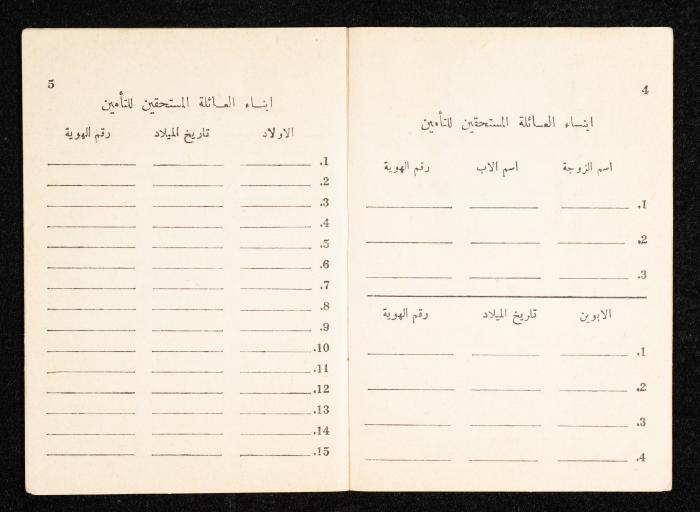 4
ابناء العائلة المستحقين للتأمين
اسم الزوجة اسم الاب رقم الهوية
1.
2.
3.
الابوين تاريخ الميلاد رقم الهوية
1.
2.
3.
4.
5
ابناء العائلة المستحقين للتأمين
الاولاد تاريخ الميلاد رقم الهوية
1.
2.
3.
4.
5.
6.
7.
8.
9.
10.
11.
12.
13.
14.
15.